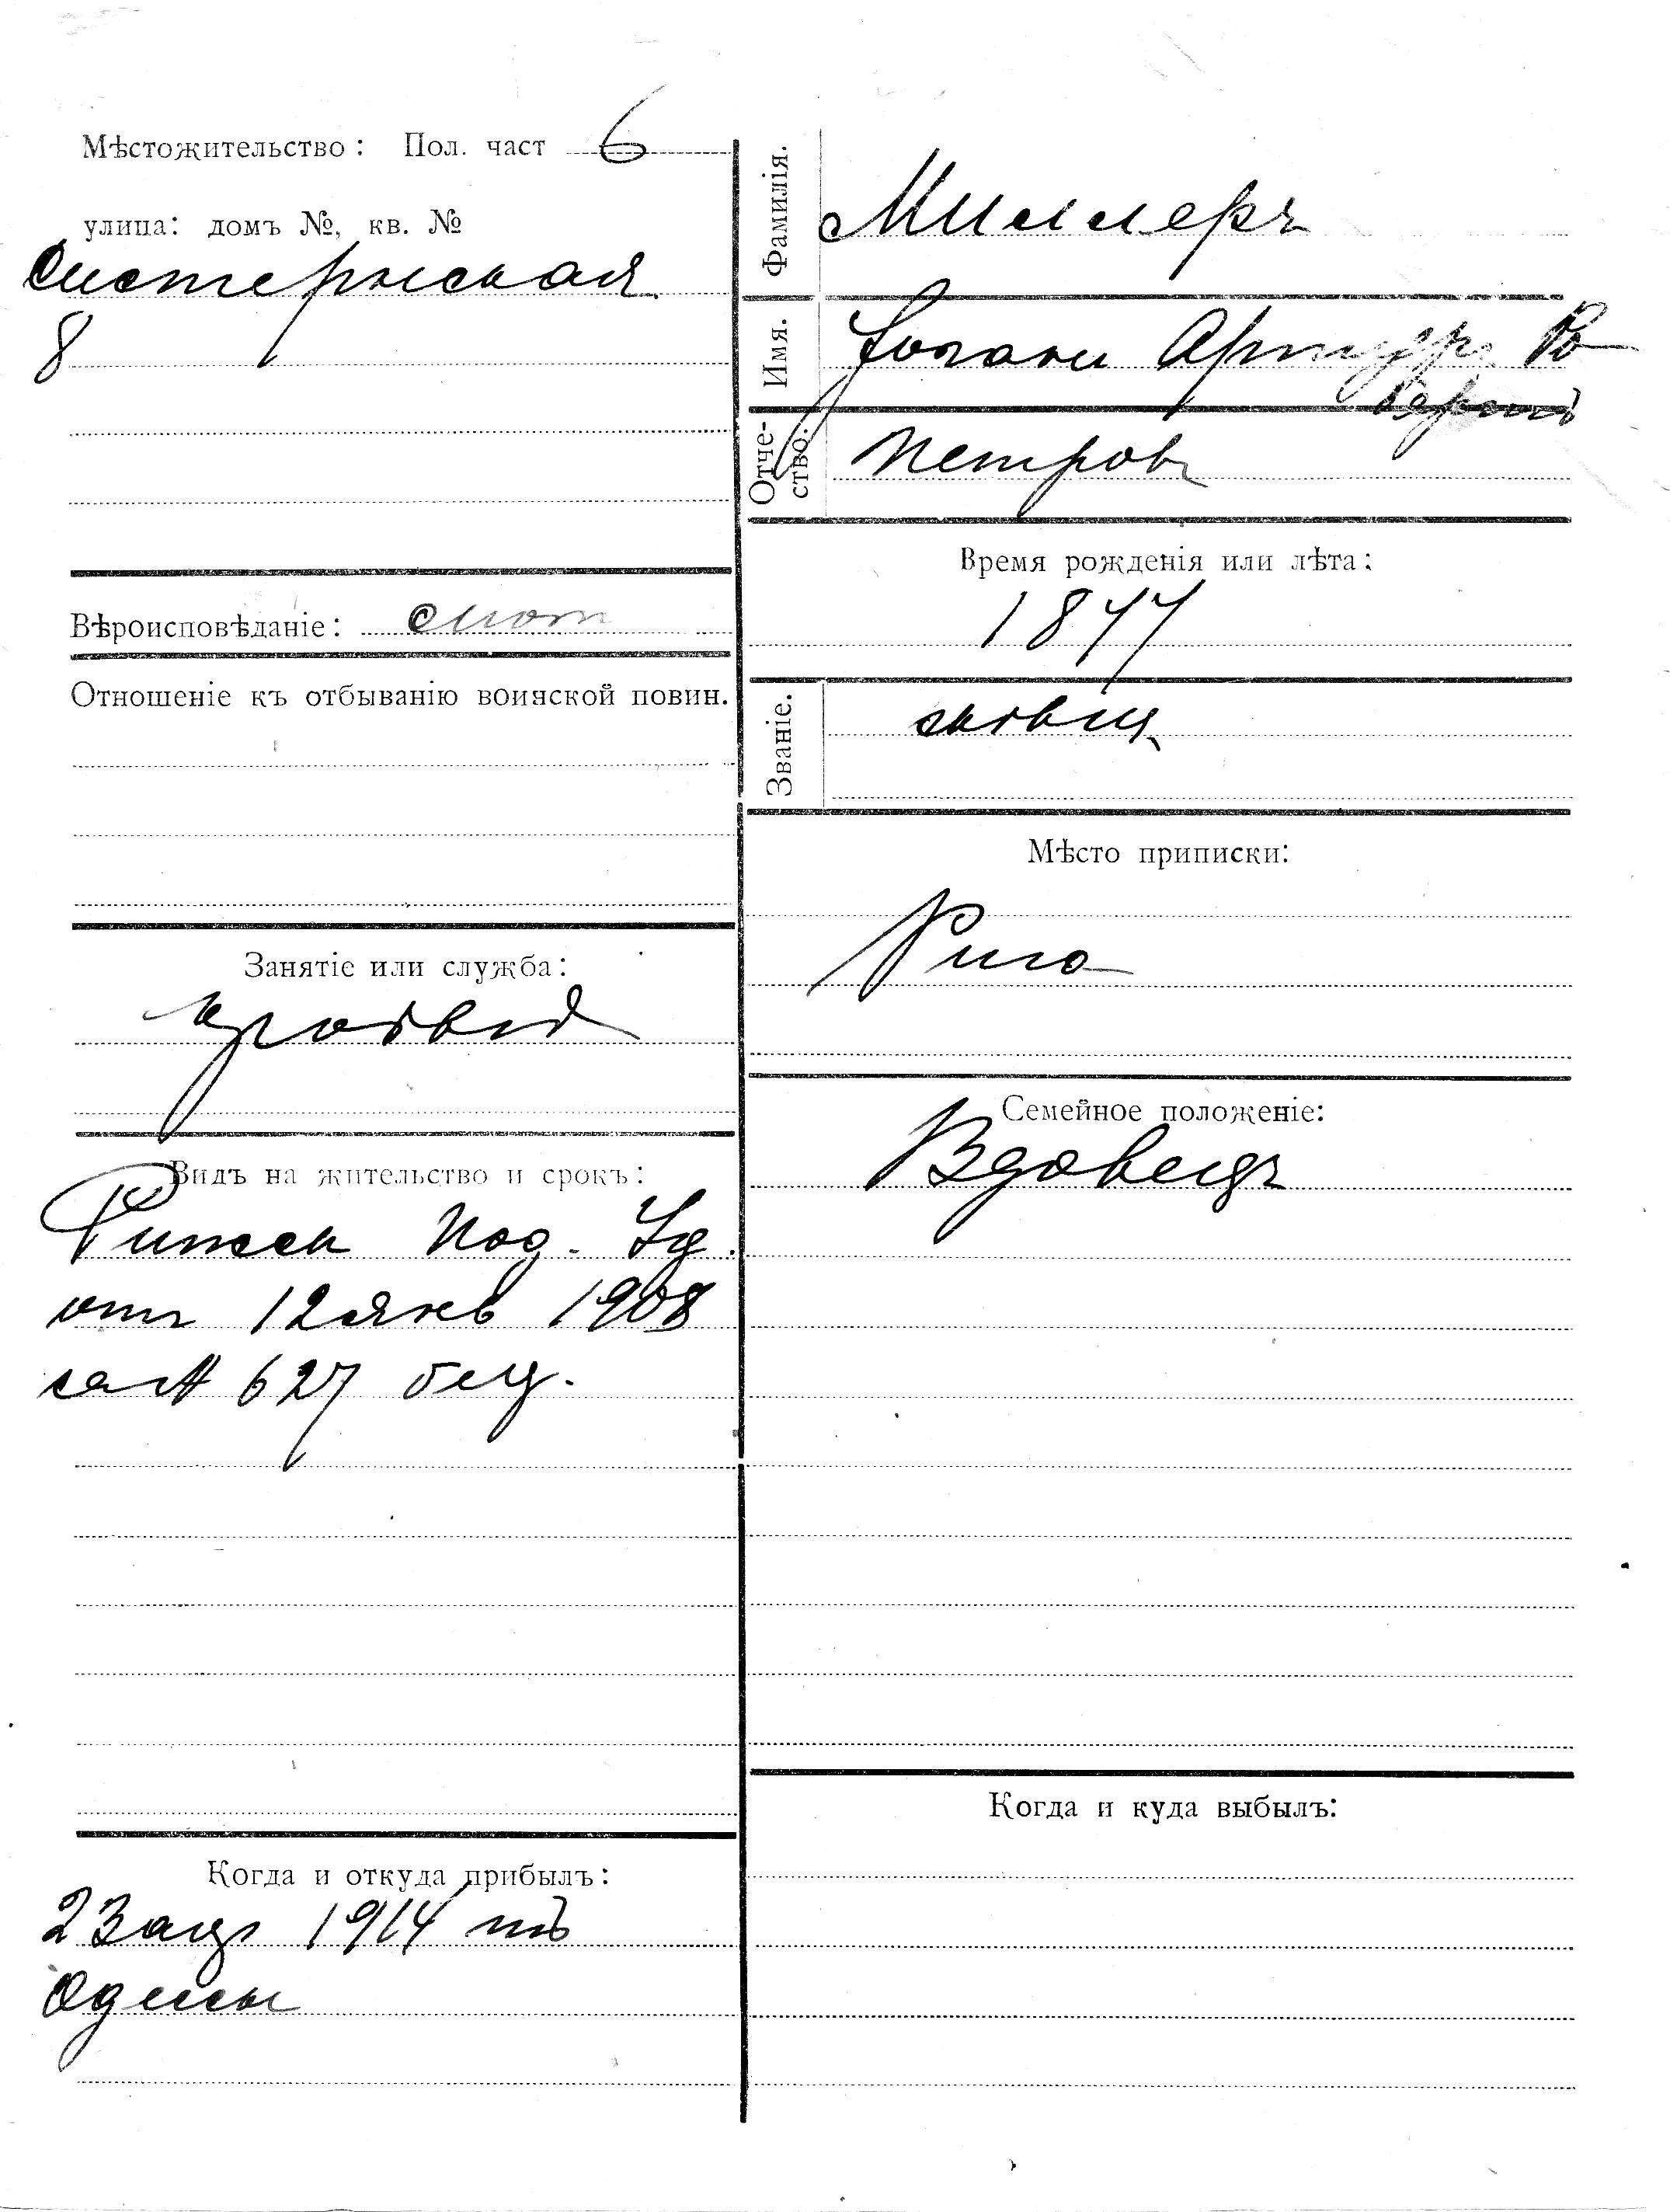 Мѣстожительство: Пол. част 6
улица: домъ №, кв. №
8
Вѣроисповѣданіе:
Отношеніе къ отбыванію воинской повин.
Занятіе или служба:
Видъ на жительство и срокъ:
Рижск Под. Уд.
отъ 12 янв 1908
за № 627 бсц.
Когда и откуда прибылъ:
23 апр 1914 изъ
Одессы
Фамилія.
Миллеръ
Имя.
Іоганн Артуръ Ро
бертъ
Отче-
ство.
Петровъ
Время рожденія или лѣта:
1877
Званіе.
Мѣсто приписки:
Рига
Семейное положеніе:
Вдовецъ
Когда и куда выбылъ: